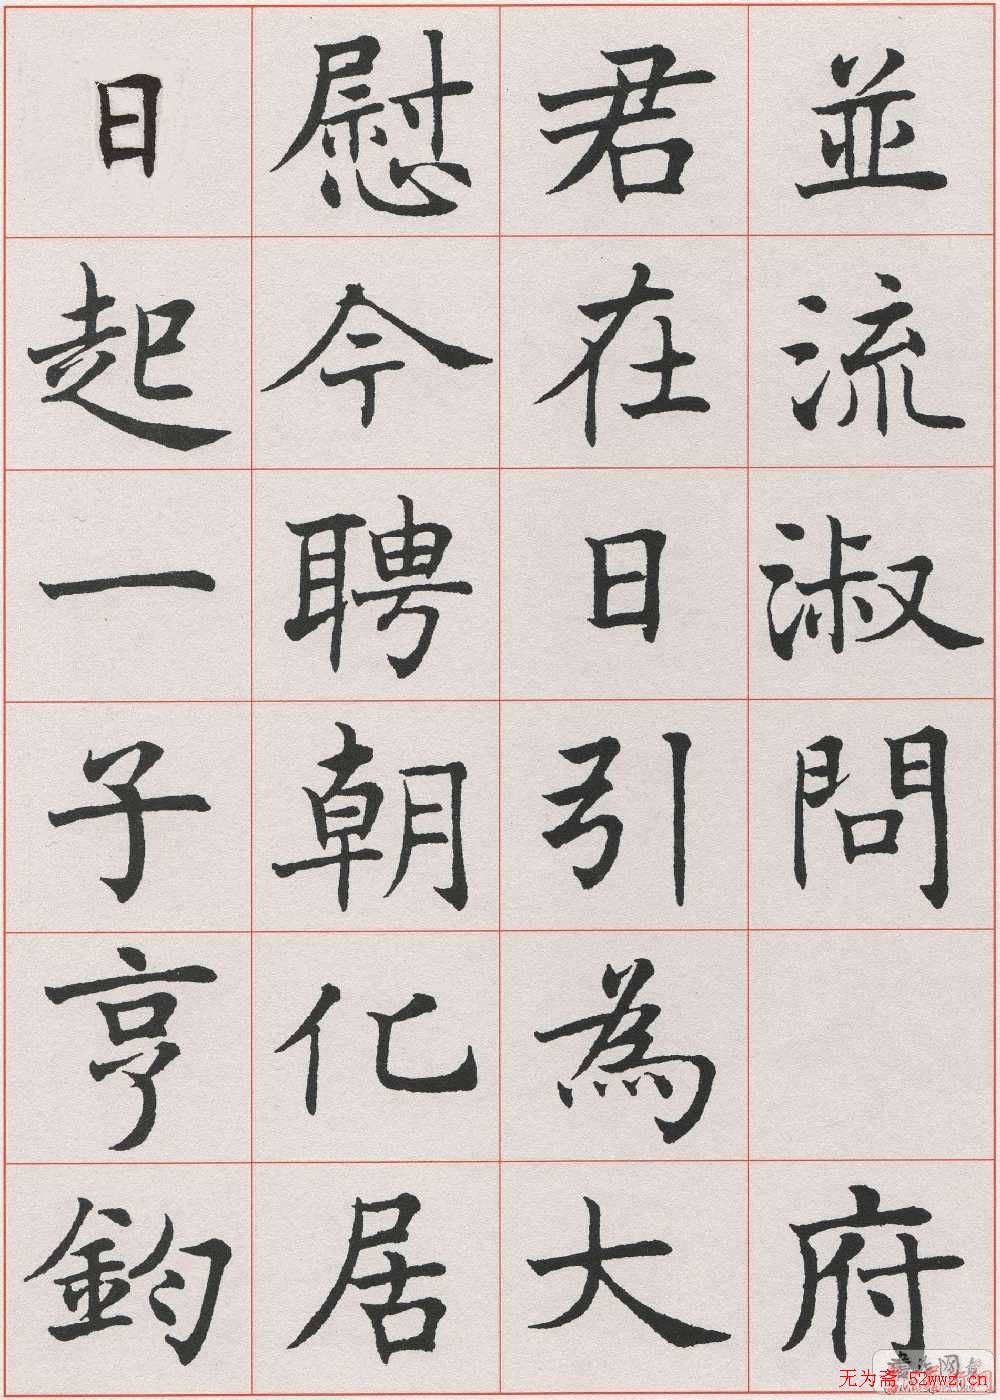 並流淑問府
君在日引為大
慰今聘朝化居
日起一子亨鈞
无为斋 52wwz.cn